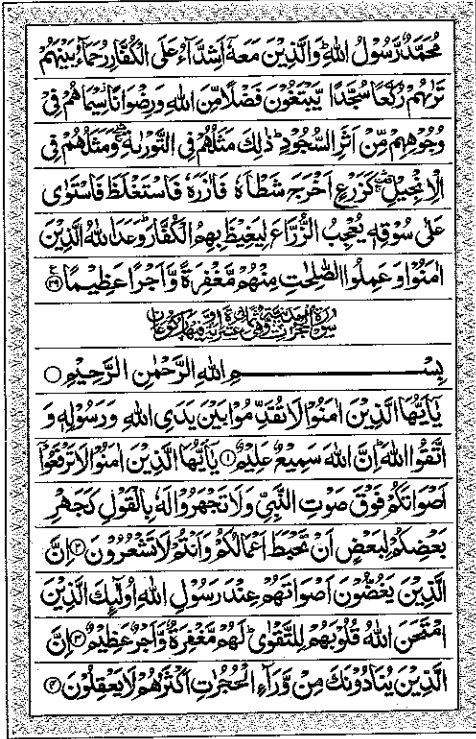 مُحَمَّدٌ رَّسُوْلُ اللهِ ؕ وَالَّذِیْنَ مَعَهٗۤ اَشِدَّآءُ عَلَی الْكُفَّارِ رُحَمَآءُ بَیْنَهُمْ
تَرٰىهُمْ رُكَّعًا سُجَّدًا یَّبْتَغُوْنَ فَضْلًا مِّنَ اللهِ وَرِضْوَانًا ؗ سِیْمَاهُمْ فِیْ
وُجُوْهِهِمْ مِّنْ اَثَرِ السُّجُوْدِ ؕ ذٰلِكَ مَثَلُهُمْ فِی التَّوْرٰىةِ ۛۖۚ وَمَثَلُهُمْ فِی
الْاِنْجِیْلِ ۛ۫ۚ كَزَرْعٍ اَخْرَجَ شَطْـَٔهٗ فَاٰزَرَهٗ فَاسْتَغْلَظَ فَاسْتَوٰی
عَلٰی سُوْقِهٖ یُعْجِبُ الزُّرَّاعَ لِیَغِیْظَ بِهِمُ الْكُفَّارَ ؕ وَعَدَ اللهُ الَّذِیْنَ
اٰمَنُوْا وَعَمِلُوا الصّٰلِحٰتِ مِنْهُمْ مَّغْفِرَةً وَّاَجْرًا عَظِیْمًا ۝۲۹
بِسْمِ اللهِ الرَّحْمٰنِ الرَّحِیْمِ ۝
یٰۤاَیُّهَا الَّذِیْنَ اٰمَنُوْا لَا تُقَدِّمُوْا بَیْنَ یَدَیِ اللهِ وَرَسُوْلِهٖ وَ
اتَّقُوا اللهَ ؕ اِنَّ اللهَ سَمِیْعٌ عَلِیْمٌ ۝۱ یٰۤاَیُّهَا الَّذِیْنَ اٰمَنُوْا لَا تَرْفَعُوْۤا
اَصْوَاتَكُمْ فَوْقَ صَوْتِ النَّبِیِّ وَلَا تَجْهَرُوْا لَهٗ بِالْقَوْلِ كَجَهْرِ
بَعْضِكُمْ لِبَعْضٍ اَنْ تَحْبَطَ اَعْمَالُكُمْ وَاَنْتُمْ لَا تَشْعُرُوْنَ ۝۲ اِنَّ
الَّذِیْنَ یَغُضُّوْنَ اَصْوَاتَهُمْ عِنْدَ رَسُوْلِ اللهِ اُولٰٓىِٕكَ الَّذِیْنَ
امْتَحَنَ اللهُ قُلُوْبَهُمْ لِلتَّقْوٰی ؕ لَهُمْ مَّغْفِرَةٌ وَّاَجْرٌ عَظِیْمٌ ۝۳ اِنَّ
الَّذِیْنَ یُنَادُوْنَكَ مِنْ وَّرَآءِ الْحُجُرٰتِ اَكْثَرُهُمْ لَا یَعْقِلُوْنَ ۝۴